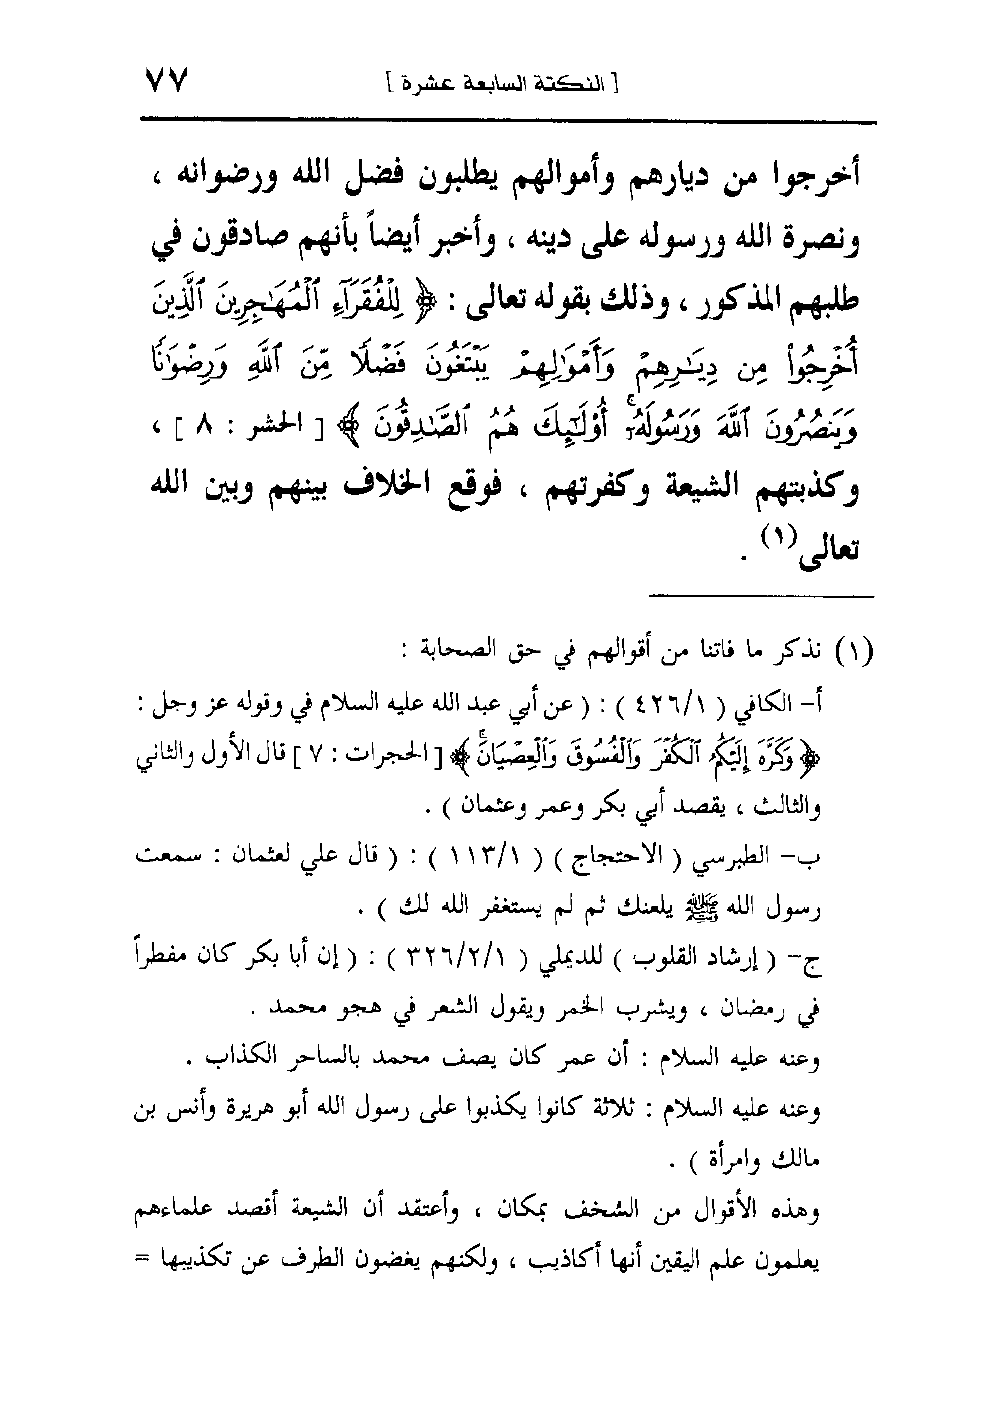 [ النكتة السابعة عشرة ] ٧٧
أخرجوا من ديارهم وأموالهم يطلبون فضل الله ورضوانه ،
ونصرة الله ورسوله على دينه ، وأخبر أيضاً بأنهم صادقون في
طلبهم المذكور ، وذلك بقوله تعالى : ﴿ لِلْفُقَرَآءِ ٱلْمُهَٰجِرِينَ ٱلَّذِينَ
أُخْرِجُوا۟ مِن دِيَٰرِهِمْ وَأَمْوَٰلِهِمْ يَبْتَغُونَ فَضْلًا مِّنَ ٱللَّهِ وَرِضْوَٰنًا
وَيَنصُرُونَ ٱللَّهَ وَرَسُولَهُۥٓ ۚ أُو۟لَٰٓئِكَ هُمُ ٱلصَّٰدِقُونَ ﴾ [ الحشر : ٨ ] ،
وكذبتهم الشيعة وكفرتهم ، فوقع الخلاف بينهم وبين الله
تعالى(١) .
(١) نذكر ما فاتنا من أقوالهم في حق الصحابة :
أ– الكافي ( ٤٢٦/١ ) : ( عن أبي عبد الله عليه السلام في وقوله عز وجل :
﴿ وَكَرَّهَ إِلَيْكُمُ ٱلْكُفْرَ وَٱلْفُسُوقَ وَٱلْعِصْيَانَ ۚ ﴾ [ الحجرات : ٧ ] قال الأول والثاني
والثالث ، يقصد أبي بكر وعمر وعثمان ) .
ب– الطبرسي ( الاحتجاج ) ( ١١٣/١ ) : ( قال علي لعثمان : سمعت
رسول الله ﷺ يلعنك ثم لم يستغفر الله لك ) .
ج– ( إرشاد القلوب ) للديملي ( ٣٢٦/٢/١ ) : ( إن أبا بكر كان مفطراً
في رمضان ، ويشرب الخمر ويقول الشعر في هجو محمد .
وعنه عليه السلام : أن عمر كان يصف محمد بالساحر الكذاب .
وعنه عليه السلام : ثلاثة كانوا يكذبوا على رسول الله أبو هريرة وأنس بن
مالك وامرأة ) .
وهذه الأقوال من السُخف بمكان ، وأعتقد أن الشيعة أقصد علماءهم
يعلمون علم اليقين أنها أكاذيب ، ولكنهم يغضون الطرف عن تكذيبها =